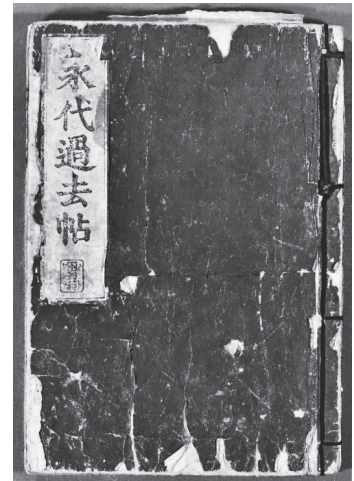 永代過去帖